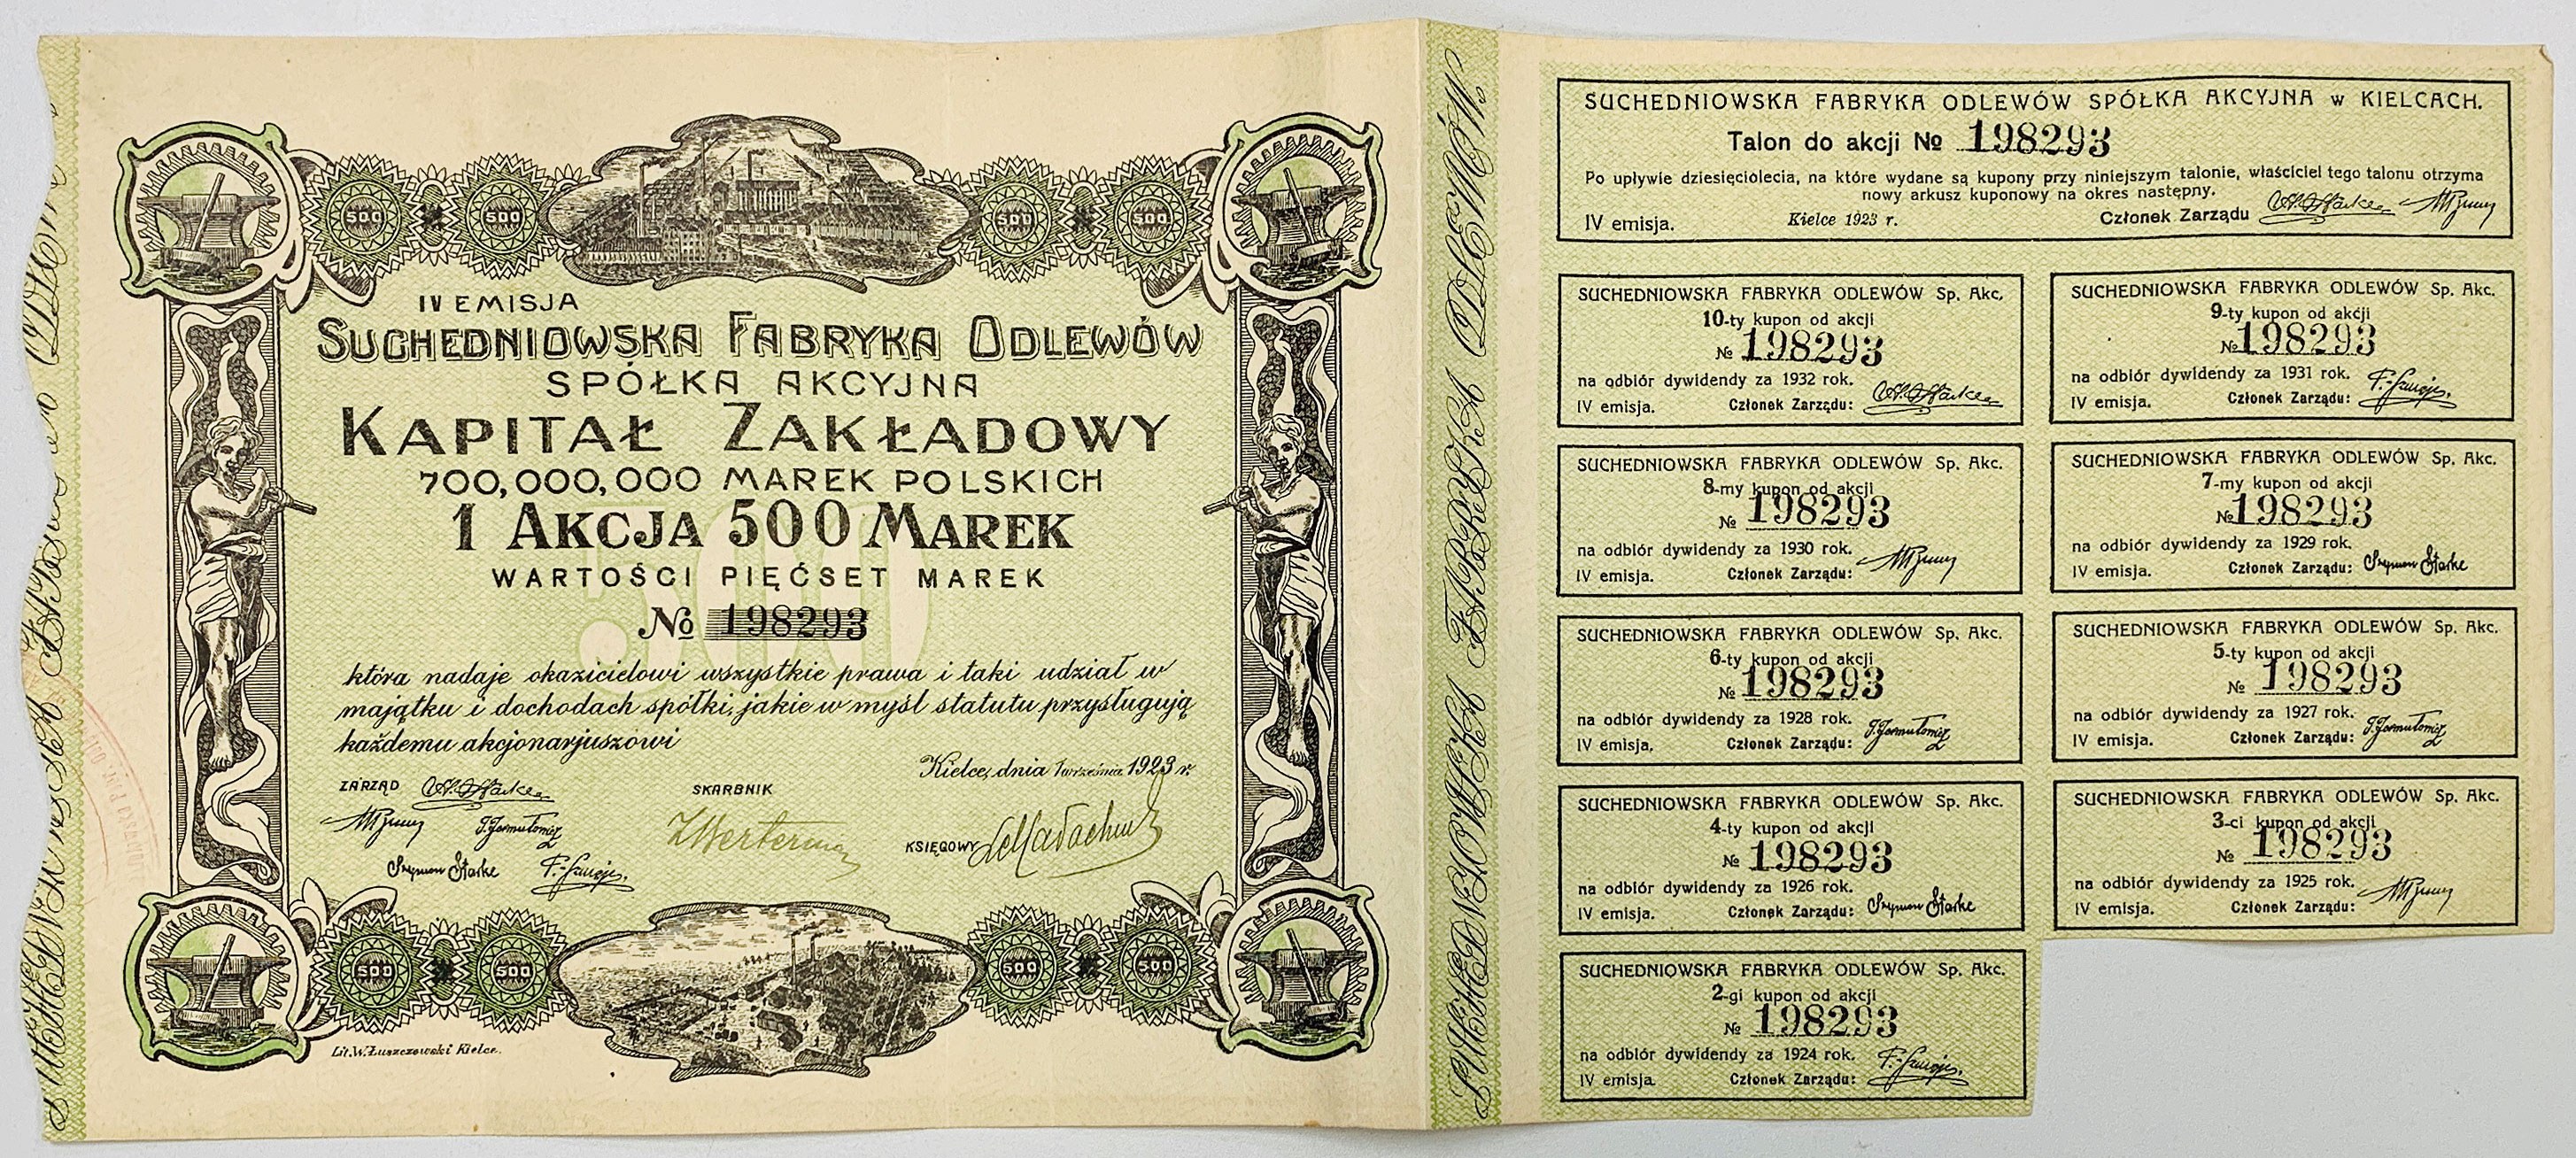 500 500 500 500
IV EMISJA
SUCHEDNIOWSKA FABRYKA ODLEWÓW
SPÓŁKA AKCYJNA
KAPITAŁ ZAKŁADOWY
700,000,000 MAREK POLSKICH
1 AKCJA 500 MAREK
WARTOŚCI PIĘĆSET MAREK
500
№ 198293
która nadaje okazicielowi wszystkie prawa i taki udział w
majątku i dochodach spółki, jakie w myśl statutu przysługują
każdemu akcjonarjuszowi
Kielce, dnia 1 września 1923 r.
ZARZĄD
SKARBNIK
KSIĘGOWY
Szymon Starke
500 500 500 500
Lit. W. Łuszczewski Kielce.
SUCHEDNIOWSKA FABRYKA ODLEWÓW.
SUCHEDNIOWSKA FABRYKA ODLEWÓW SPÓŁKA AKCYJNA w KIELCACH.
Talon do akcji № 198293
Po upływie dziesięciolecia, na które wydane są kupony przy niniejszym talonie, właściciel tego talonu otrzyma
nowy arkusz kuponowy na okres następny.
IV emisja. Kielce 1923 r. Członek Zarządu
SUCHEDNIOWSKA FABRYKA ODLEWÓW Sp. Akc.
10-ty kupon od akcji
№ 198293
na odbiór dywidendy za 1932 rok.
IV emisja. Członek Zarządu:
SUCHEDNIOWSKA FABRYKA ODLEWÓW Sp. Akc.
9-ty kupon od akcji
№ 198293
na odbiór dywidendy za 1931 rok.
IV emisja. Członek Zarządu:
SUCHEDNIOWSKA FABRYKA ODLEWÓW Sp. Akc.
8-my kupon od akcji
№ 198293
na odbiór dywidendy za 1930 rok.
IV emisja. Członek Zarządu:
SUCHEDNIOWSKA FABRYKA ODLEWÓW Sp. Akc.
7-my kupon od akcji
№ 198293
na odbiór dywidendy za 1929 rok.
IV emisja. Członek Zarządu: Szymon Starke
SUCHEDNIOWSKA FABRYKA ODLEWÓW Sp. Akc.
6-ty kupon od akcji
№ 198293
na odbiór dywidendy za 1928 rok.
IV emisja. Członek Zarządu:
SUCHEDNIOWSKA FABRYKA ODLEWÓW Sp. Akc.
5-ty kupon od akcji
№ 198293
na odbiór dywidendy za 1927 rok.
IV emisja. Członek Zarządu:
SUCHEDNIOWSKA FABRYKA ODLEWÓW Sp. Akc.
4-ty kupon od akcji
№ 198293
na odbiór dywidendy za 1926 rok.
IV emisja. Członek Zarządu: Szymon Starke
SUCHEDNIOWSKA FABRYKA ODLEWÓW Sp. Akc.
3-ci kupon od akcji
№ 198293
na odbiór dywidendy za 1925 rok.
IV emisja. Członek Zarządu:
SUCHEDNIOWSKA FABRYKA ODLEWÓW Sp. Akc.
2-gi kupon od akcji
№ 198293
na odbiór dywidendy za 1924 rok.
IV emisja. Członek Zarządu: